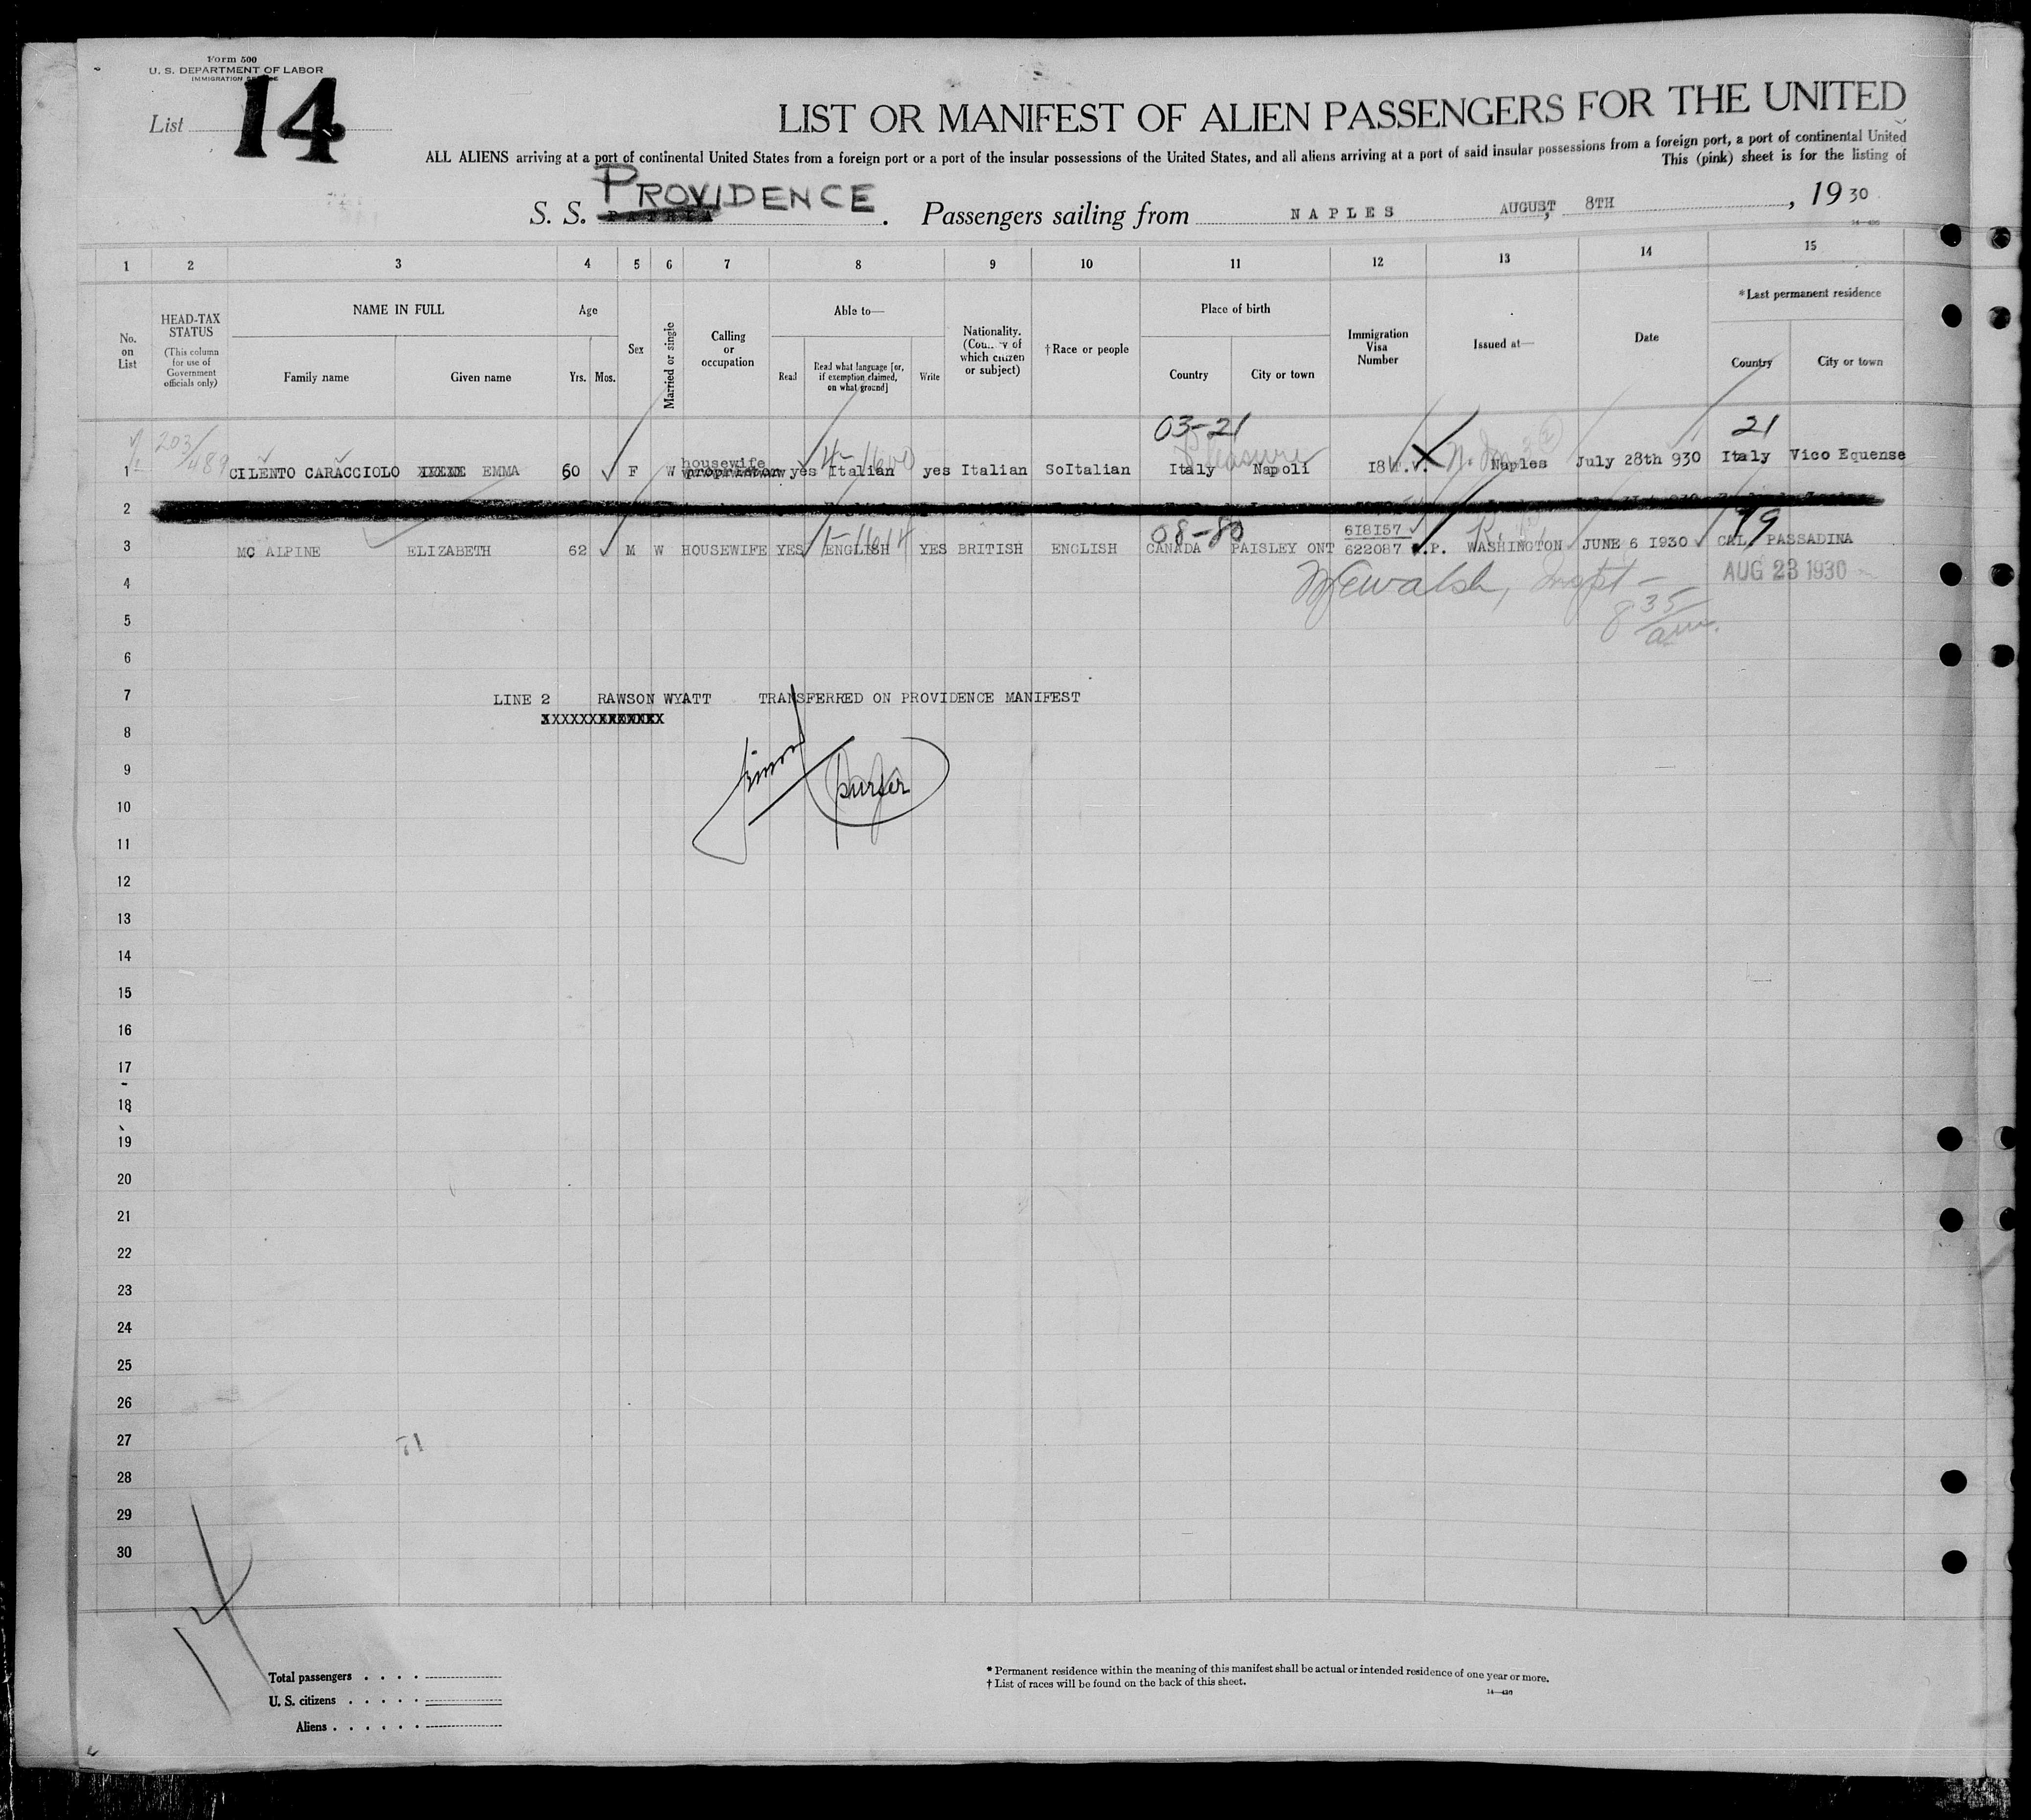 Form 500
U. S. DEPARTMENT OF LABOR
IMMIGRATION
List 14
LIST OR MANIFEST OF ALIEN PASSENGERS FOR THE UNITED
ALL ALIENS arriving at a port of continental United States from a foreign port or a port of the insular possessions of the United States, and all aliens arriving at a port of said insular possessions from a foreign port, a port of continental United
This (pink) sheet is for the listing of
S. S. PROVIDENCE. Passengers sailing from NAPLES AUGUST, 8TH, 1930
1 2 3 4 5 6 7 8 9 10 11 12 13 14 15
No. on List
HEAD-TAX STATUS (This column for use of Government officials only)
NAME IN FULL Family name Given name
Age Yrs. Mos.
Sex
Married or single
Calling or occupation
Able to— Read Read what language [or, if exemption claimed, on what ground] Write
Nationality. (Country of which citizen or subject)
†Race or people
Place of birth Country City or town
Immigration Visa Number
Issued at—
Date
*Last permanent residence Country City or town
03-21 21
203/489 Pleasure
housewife
1 CILENTO CARACCIOLO EMMA 60 F W yes Italian yes Italian SoItalian Italy Napoli 18 T.V. Naples July 28th 930 Italy Vico Equense
2
08-80 618157 79
3 MC ALPINE ELIZABETH 62 M W HOUSEWIFE YES ENGLISH YES BRITISH ENGLISH CANADA PAISLEY ONT 622087 R.P. WASHINGTON JUNE 6 1930 CAL PASSADINA
4 AUG 23 1930
5 8 35 am.
6
7 LINE 2 RAWSON WYATT TRANSFERRED ON PROVIDENCE MANIFEST
XXXXXXXXXXXXX
8
9
purser
10
11
12
13
14
15
16
17
18
19
20
21
22
23
24
25
26
27
28
29
30
14
Total passengers . . . .
U. S. citizens . . . . .
Aliens . . . . . .
* Permanent residence within the meaning of this manifest shall be actual or intended residence of one year or more.
† List of races will be found on the back of this sheet.
14—436